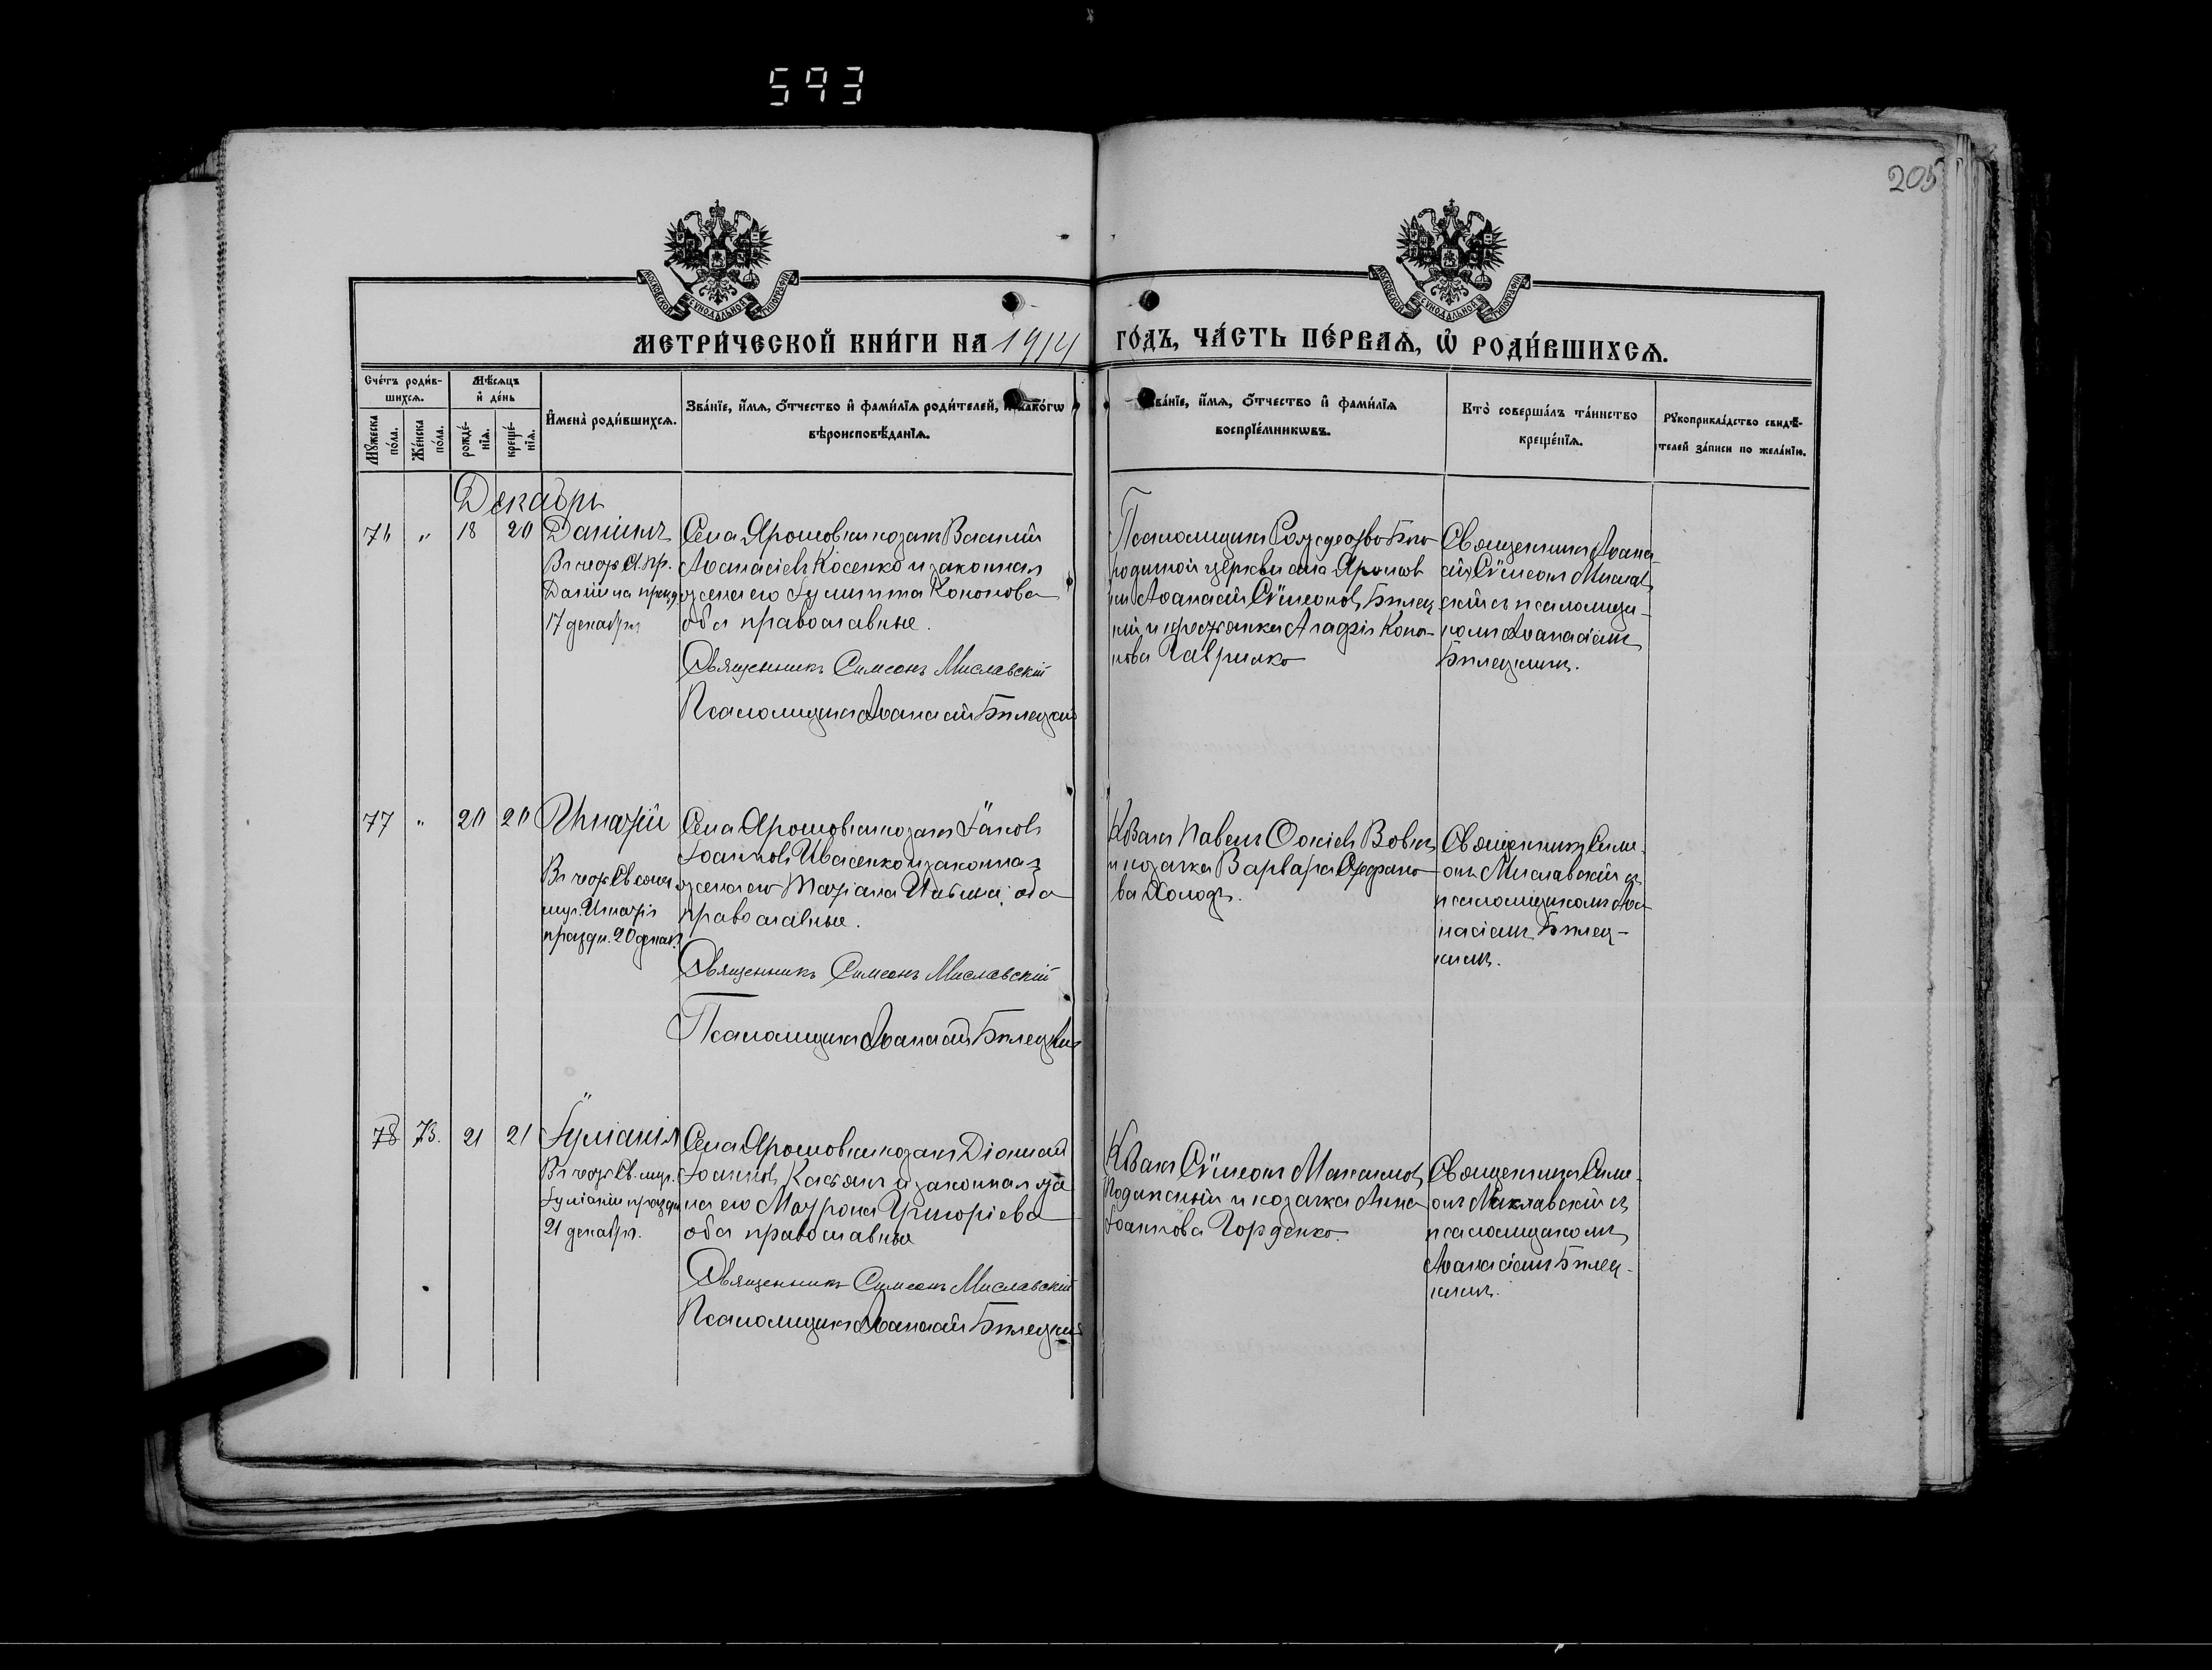 593
205
МОСКОВСКОЙ СѴНОДАЛЬНОЙ ТИПОГРАФІИ
МОСКОВСКОЙ СѴНОДАЛЬНОЙ ТИПОГРАФІИ
МЕТРИ́ЧЕСКОЙ КНИ́ГИ НА 1914 ГО́ДЪ, ЧА́СТЬ ПЕ́РВАѦ, Ѡ҆ РОДИ́ВШИХСѦ.
Сче́тъ роди́в-
шихсѧ.
Мꙋ́жеска по́ла.
Же́нска по́ла.
Мѣ́сѧцъ
и҆ де́нь
рожде́-
нїѧ.
креще́-
нїѧ.
И҆мена̀ роди́вшихсѧ.
Зва́нїе, и҆́мѧ, ѻ҆́тчество и҆ фами́лїѧ роди́телей, и҆ како́гѡ
вѣроисповѣ́данїѧ.
Зва́нїе, и҆́мѧ, ѻ҆́тчество и҆ фами́лїѧ
воспрїе́мникѡвъ.
Кто̀ соверша́лъ та́инство
креще́нїѧ.
Рꙋкоприкла́дство свидѣ́-
телей за́писи по жела́нїю.
Декабрь
76 " 18 20 Даніилъ
Въ честь Св. пр.
Даніила празд
17 декабря
Села Ярошовки козакъ Василій
Аѳанасіевъ Косенко и законная
жена его Іулитта Кононова
оба православные.
Священникъ Симеонъ Миславскій
Псаломщикъ Аѳанасій Бѣлецкій
Псаломщикъ Рождество Бого
родичной церкви села Ярошов
ки Аѳанасій Сѵмеоновъ Бѣлец
кій и крестьянка Агафія Коно-
нова Гаврилко
Священникъ
Сѵмеонъ Мислав
скій съ псаломщи-
комъ Аѳанасіемъ
Бѣлецкимъ.
77 " 20 20 Игнатій
Въ честь Св.
муч. Игнатія
праздн. 20 декаб.
Села Ярошовки козакъ Іаковъ
Іоанновъ Ивасенко и законная
жена его Татіана оба
православные.
Священникъ Симеонъ Миславскій
Псаломщикъ Аѳанасій Бѣлецкій
Козакъ Павелъ Вовкъ
и козачка Варвара
ва Холодъ.
Священникъ Симе-
онъ Миславскій съ
псаломщикомъ Аѳа
насіемъ Бѣлец-
кимъ.
78 73. 21 21 Іуліанія
Въ честь Св. муц.
Іуліаніи праздн
21 декабря.
Села Ярошовки козакъ Діомид
Іоанновъ Касьянъ и законная же
на его Мотрона Григоріева
оба православные
Священникъ Симеонъ Миславскій
Псаломщикъ Аѳанасій Бѣлецкій
Козакъ Сѵмеонъ Максимовъ
и козачка Анна
Іоаннова Горденко.
Священникъ Симе-
онъ Миславскій съ
псаломщикомъ
Аѳанасіемъ Бѣлец-
кимъ.